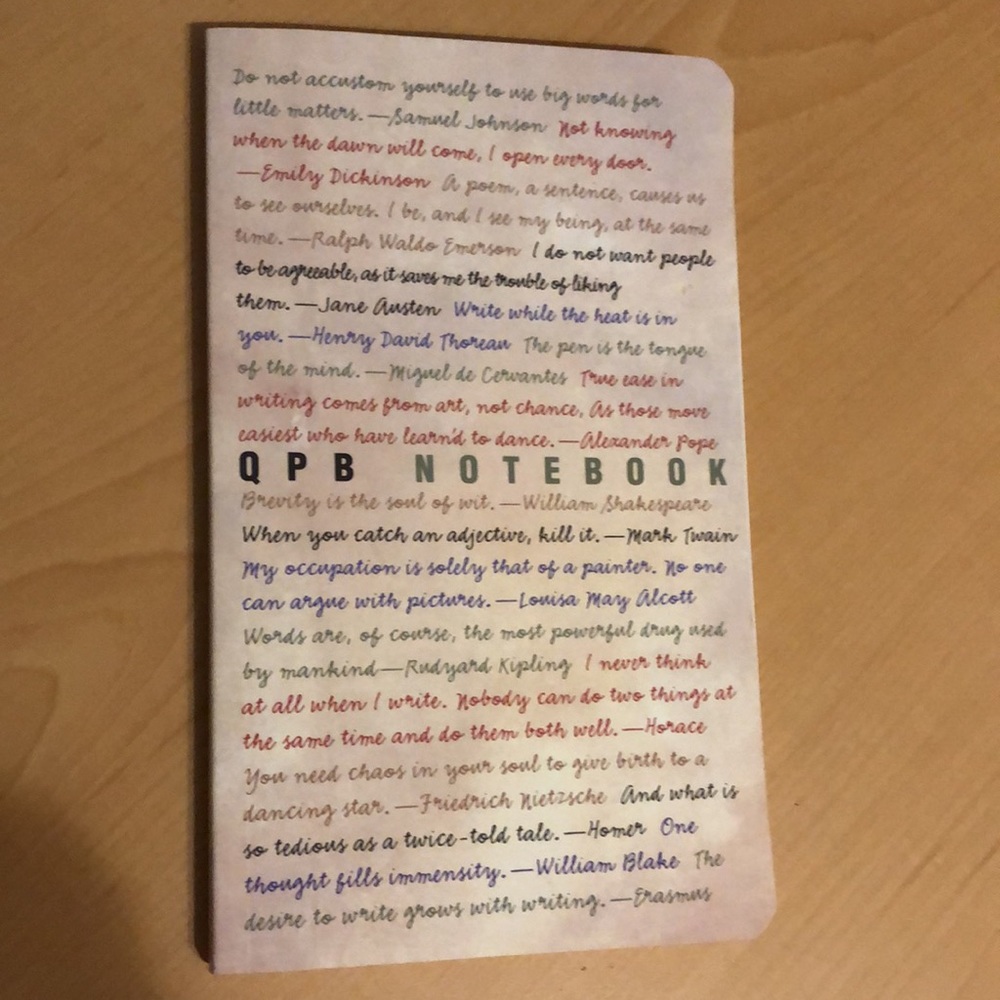 Do not accustom yourself to use big words for
little matters. —Samuel Johnson Not knowing
when the dawn will come, I open every door.
—Emily Dickinson A poem, a sentence, causes us
to see ourselves. I be, and I see my being, at the same
time. —Ralph Waldo Emerson I do not want people
to be agreeable, as it saves me the trouble of liking
them. —Jane Austen Write while the heat is in
you. —Henry David Thoreau The pen is the tongue
of the mind. —Miguel de Cervantes True ease in
writing comes from art, not chance, As those move
easiest who have learn'd to dance. —Alexander Pope
QPB NOTEBOOK
Brevity is the soul of wit. —William Shakespeare
When you catch an adjective, kill it. —Mark Twain
My occupation is solely that of a painter. No one
can argue with pictures. —Louisa May Alcott
Words are, of course, the most powerful drug used
by mankind—Rudyard Kipling I never think
at all when I write. Nobody can do two things at
the same time and do them both well. —Horace
You need chaos in your soul to give birth to a
dancing star. —Friedrich Nietzsche And what is
so tedious as a twice-told tale. —Homer One
thought fills immensity. —William Blake The
desire to write grows with writing. —Erasmus